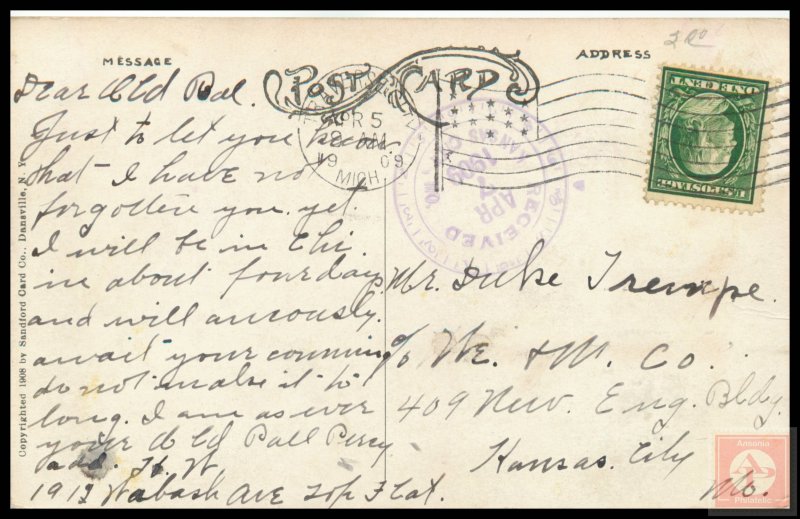 MESSAGE
POST CARD
ADDRESS
Dear Old Pal.
Just to let you know
that I have not
forgotten you yet.
I will be in Chi.
in about four days
and will anxously.
await your comming
do not make it to
long. I am as ever
your Old Pall Percy
add. H. W.
1913 Wabash Ave Top Flat.
Mr. Duke Trempe.
c/o We. & M. Co.
409 New. Eng. Bldg.
Kansas. City
Mo.
APR 5
AM
1909
MICH.
KANSAS CITY, MO.
1909
APR
RECEIVED
U.S. POSTAGE
ONE CENT
Copyrighted 1908 by Sandford Card Co., Dansville, N. Y.
Ansonia
Philatelic